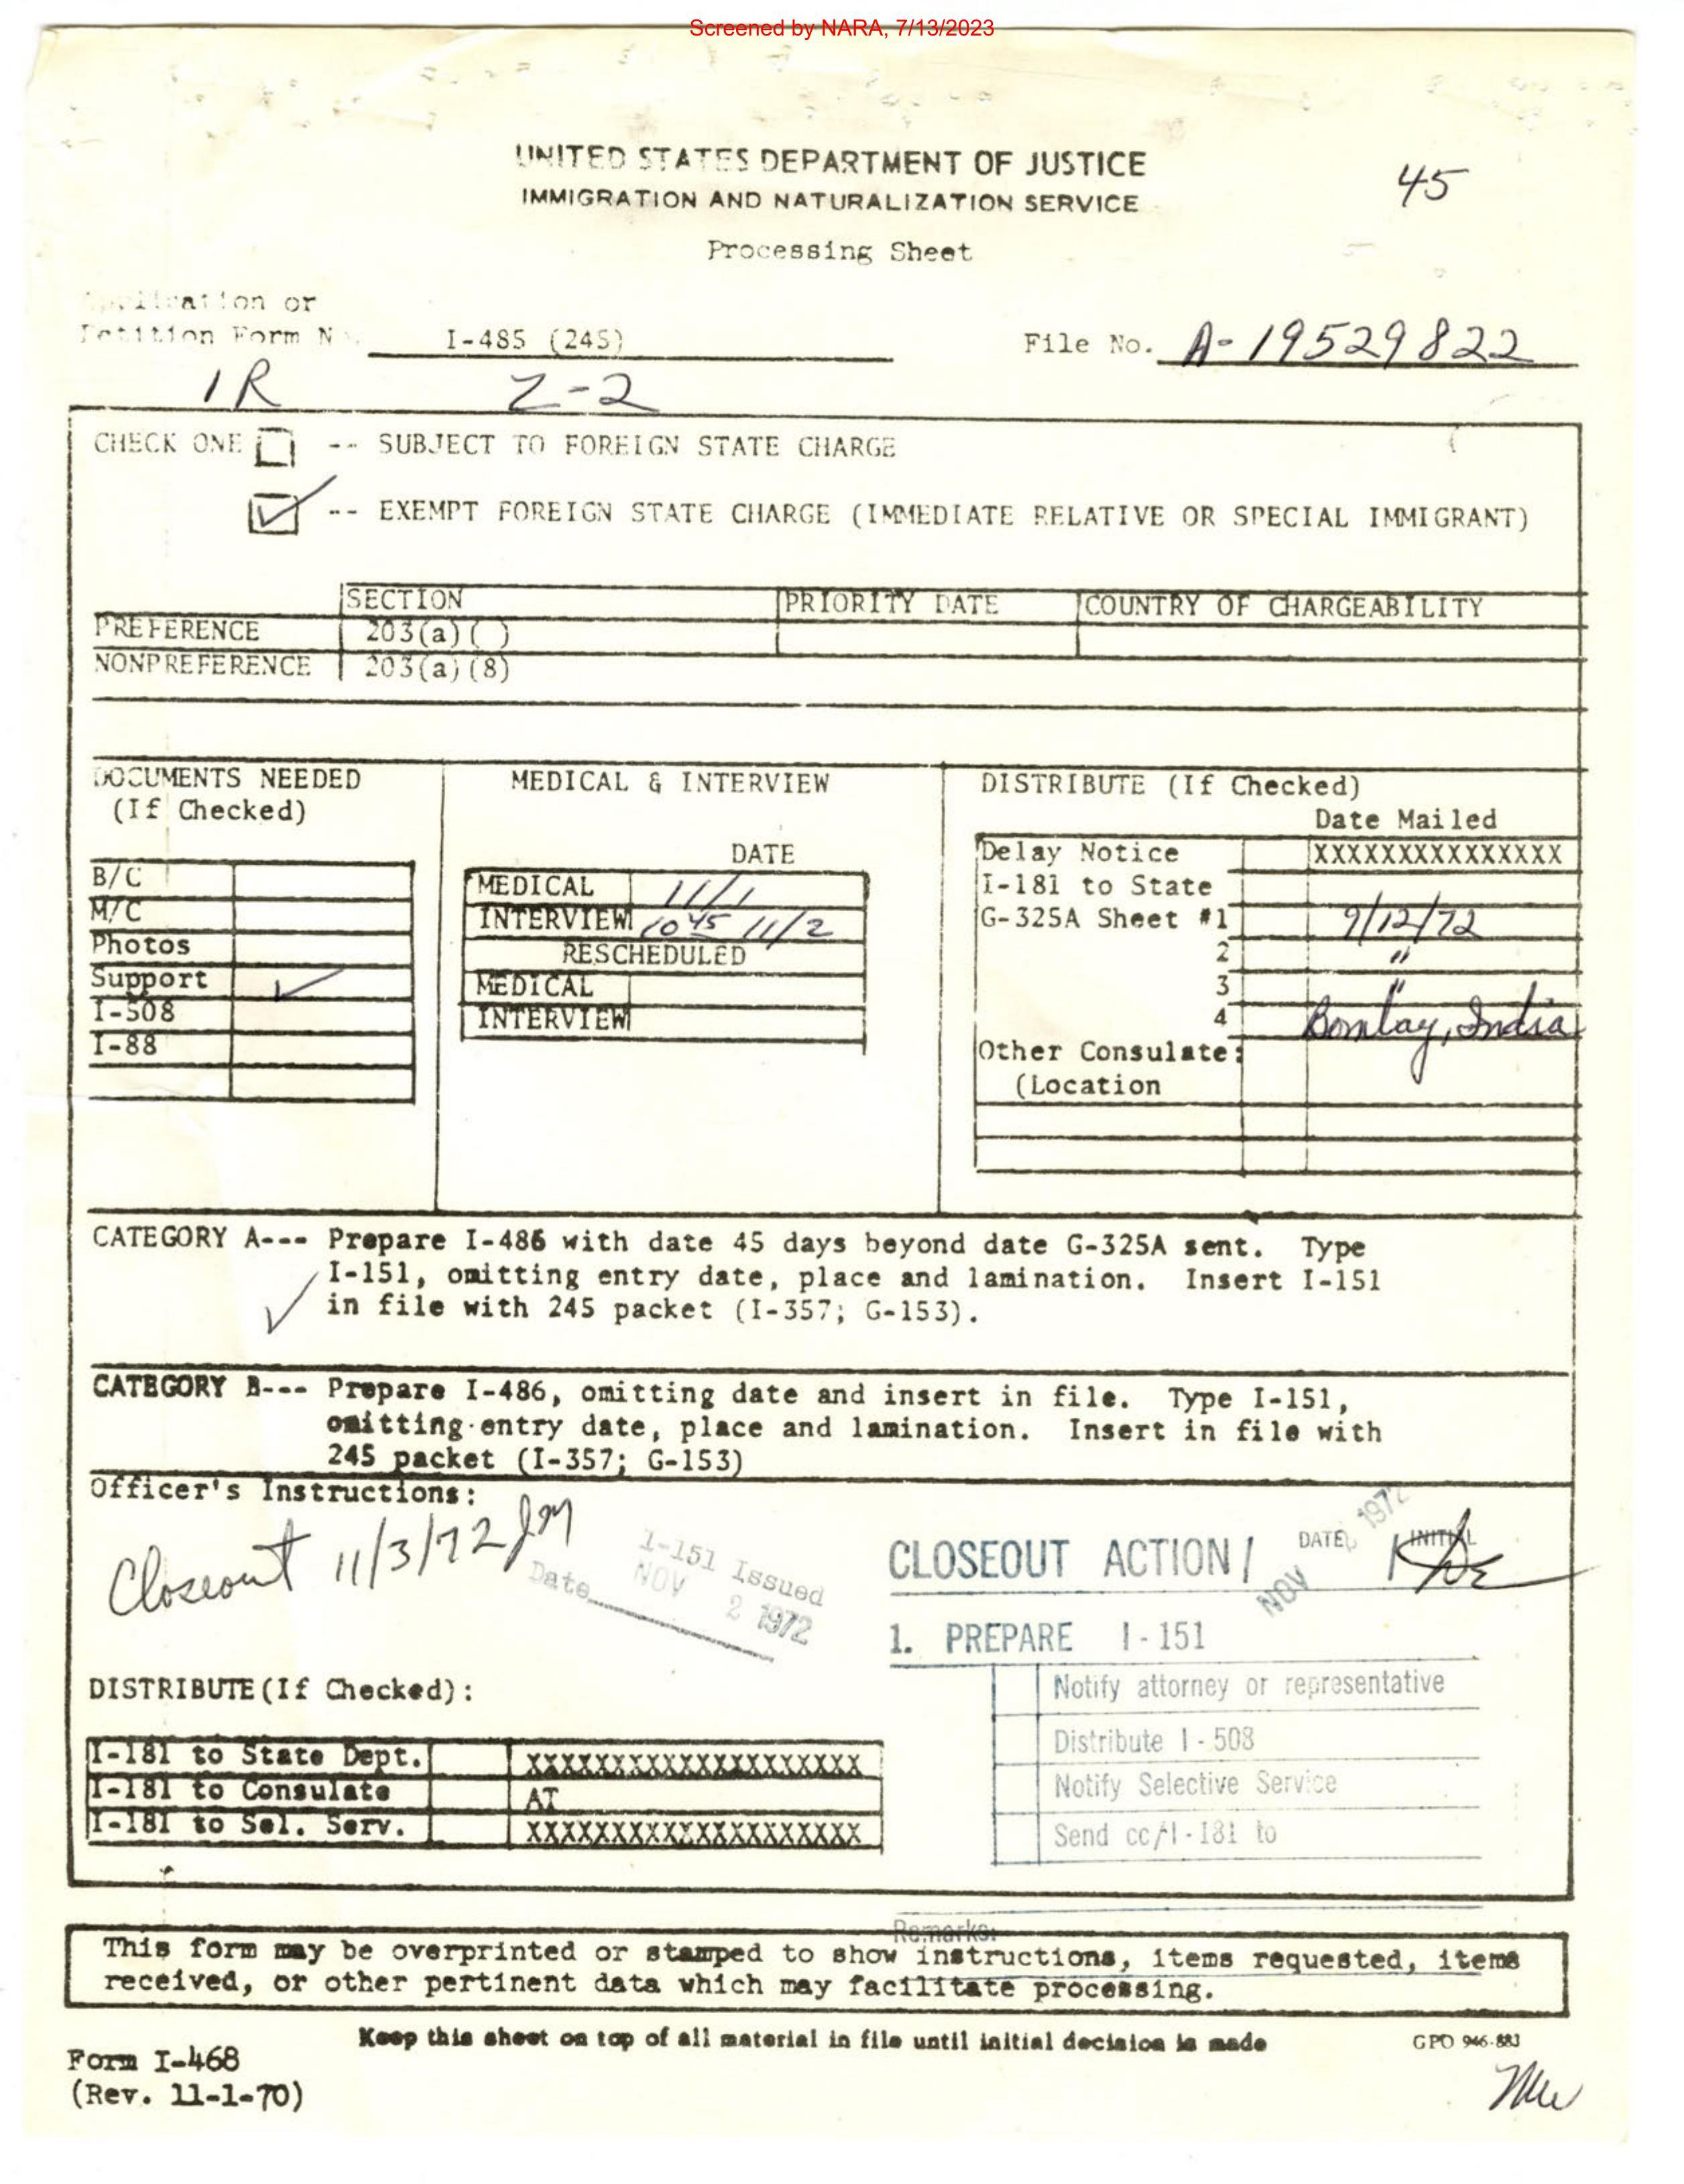 Screened by NARA, 7/13/2023
UNITED STATES DEPARTMENT OF JUSTICE
45
IMMIGRATION AND NATURALIZATION SERVICE
Processing Sheet
Application or
Petition Form No. I-485 (245)
File No. A-19529822
IR Z-2
CHECK ONE -- SUBJECT TO FOREIGN STATE CHARGE
✓ -- EXEMPT FOREIGN STATE CHARGE (IMMEDIATE RELATIVE OR SPECIAL IMMIGRANT)
SECTION PRIORITY DATE COUNTRY OF CHARGEABILITY
PREFERENCE 203(a)( )
NONPREFERENCE 203(a)(8)
DOCUMENTS NEEDED
(If Checked)
B/C
M/C
Photos
Support ✓
I-508
I-88
MEDICAL & INTERVIEW
DATE
MEDICAL 11/1
INTERVIEW 1045 11/2
RESCHEDULED
MEDICAL
INTERVIEW
DISTRIBUTE (If Checked)
Date Mailed
Delay Notice XXXXXXXXXXXXXXX
I-181 to State
G-325A Sheet #1 9/12/72
2 "
3 "
4 Bombay, India
Other Consulate:
(Location
CATEGORY A--- Prepare I-486 with date 45 days beyond date G-325A sent. Type
I-151, omitting entry date, place and lamination. Insert I-151
✓ in file with 245 packet (I-357; G-153).
CATEGORY B--- Prepare I-486, omitting date and insert in file. Type I-151,
omitting entry date, place and lamination. Insert in file with
245 packet (I-357; G-153)
Officer's Instructions:
Closeout 11/3/72 JM
I-151 Issued
Date NOV 2 1972
CLOSEOUT ACTION/ DATE INITIAL
NOV 2 1972
1. PREPARE I-151
Notify attorney or representative
Distribute I-508
Notify Selective Service
Send cc/I-181 to
DISTRIBUTE(If Checked):
I-181 to State Dept. XXXXXXXXXXXXXXXXXXXX
I-181 to Consulate AT
I-181 to Sel. Serv. XXXXXXXXXXXXXXXXXXXX
Remarks:
This form may be overprinted or stamped to show instructions, items requested, items
received, or other pertinent data which may facilitate processing.
Keep this sheet on top of all material in file until initial decision is made
GPO 946-883
Form I-468
(Rev. 11-1-70)